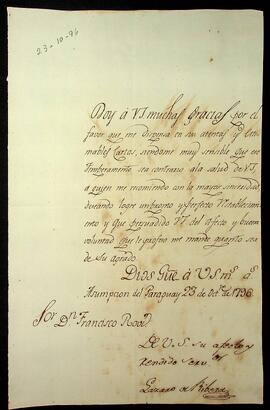 23-10-96
Doy á VS muchas gracias por el
favor que me dispensa en sus atentas y esti-
mables Cartas, siendome muy sensible que ese
Temperamento sea contrario ala salud de VS,
a quien me recomiendo con la mayor sinceridad,
deseando logre un pronto y perfecto restablecimi-
ento y que persuadido VS del afecto y buena
voluntad que le profeso me mande quanto sea
de su agrado.
Dios Gue. á V.S. ms. as.
Asumpcion del Paraguay 23 de Octre. de 1796.
Sor. Dn. Francisco
De V.S. su afecto y
rendido serv.or
Lazaro de Ribera